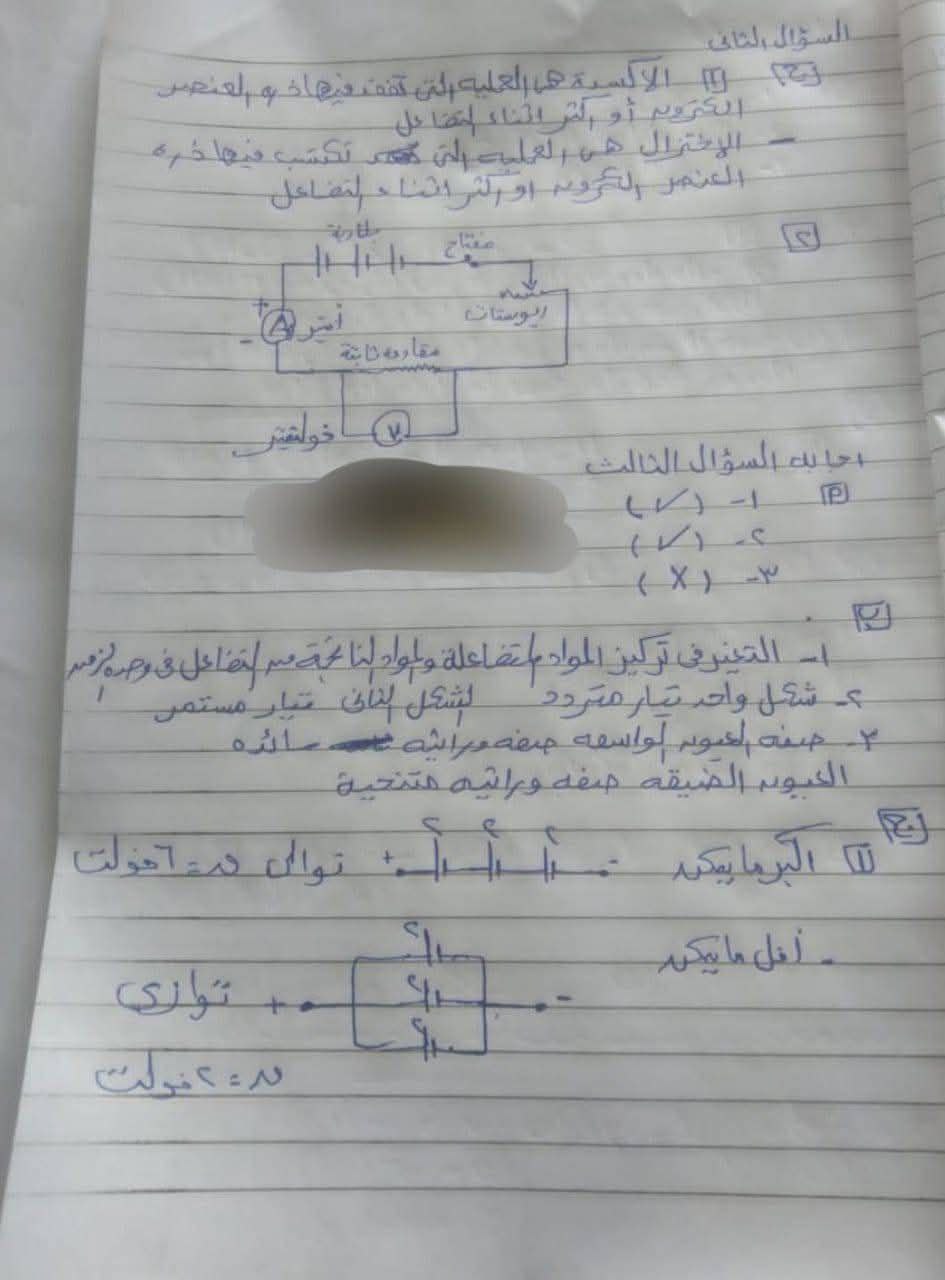 السؤال الثانى
ج 1 الأكسدة هى العملية التى تفقد فيها ذرة العنصر
الكترون أو اكثر اثناء التفاعل
- الإختزال هى العملية التى تكتسب فيها ذره
العنصر الكترون او اكثر اثناء التفاعل
٢
بطارية
مفتاح
ريوستات
+ A أميتر
-
مقاومة ثابتة
V فولتميتر
اجابه السؤال الثالث
أ ١- (✓)
٢- (✓)
٣- (X)
ب
١- التغير فى تركيز المواد المتفاعلة والمواد الناتجة من التفاعل فى وحدة الزمن
٢- شكل واحد تيار متردد الشكل الثانى تيار مستمر
٣- صفه العيون الواسعه صفه وراثيه سائده
العيون الضيقه صفه وراثيه متنحية
ج
1 اكبر ما يمكن - ٢ ٢ ٢ + توالى ق = ٦ فولت
- أقل ما يمكن
٢
- ٢ + توازى
٢
ق = ٢ فولت